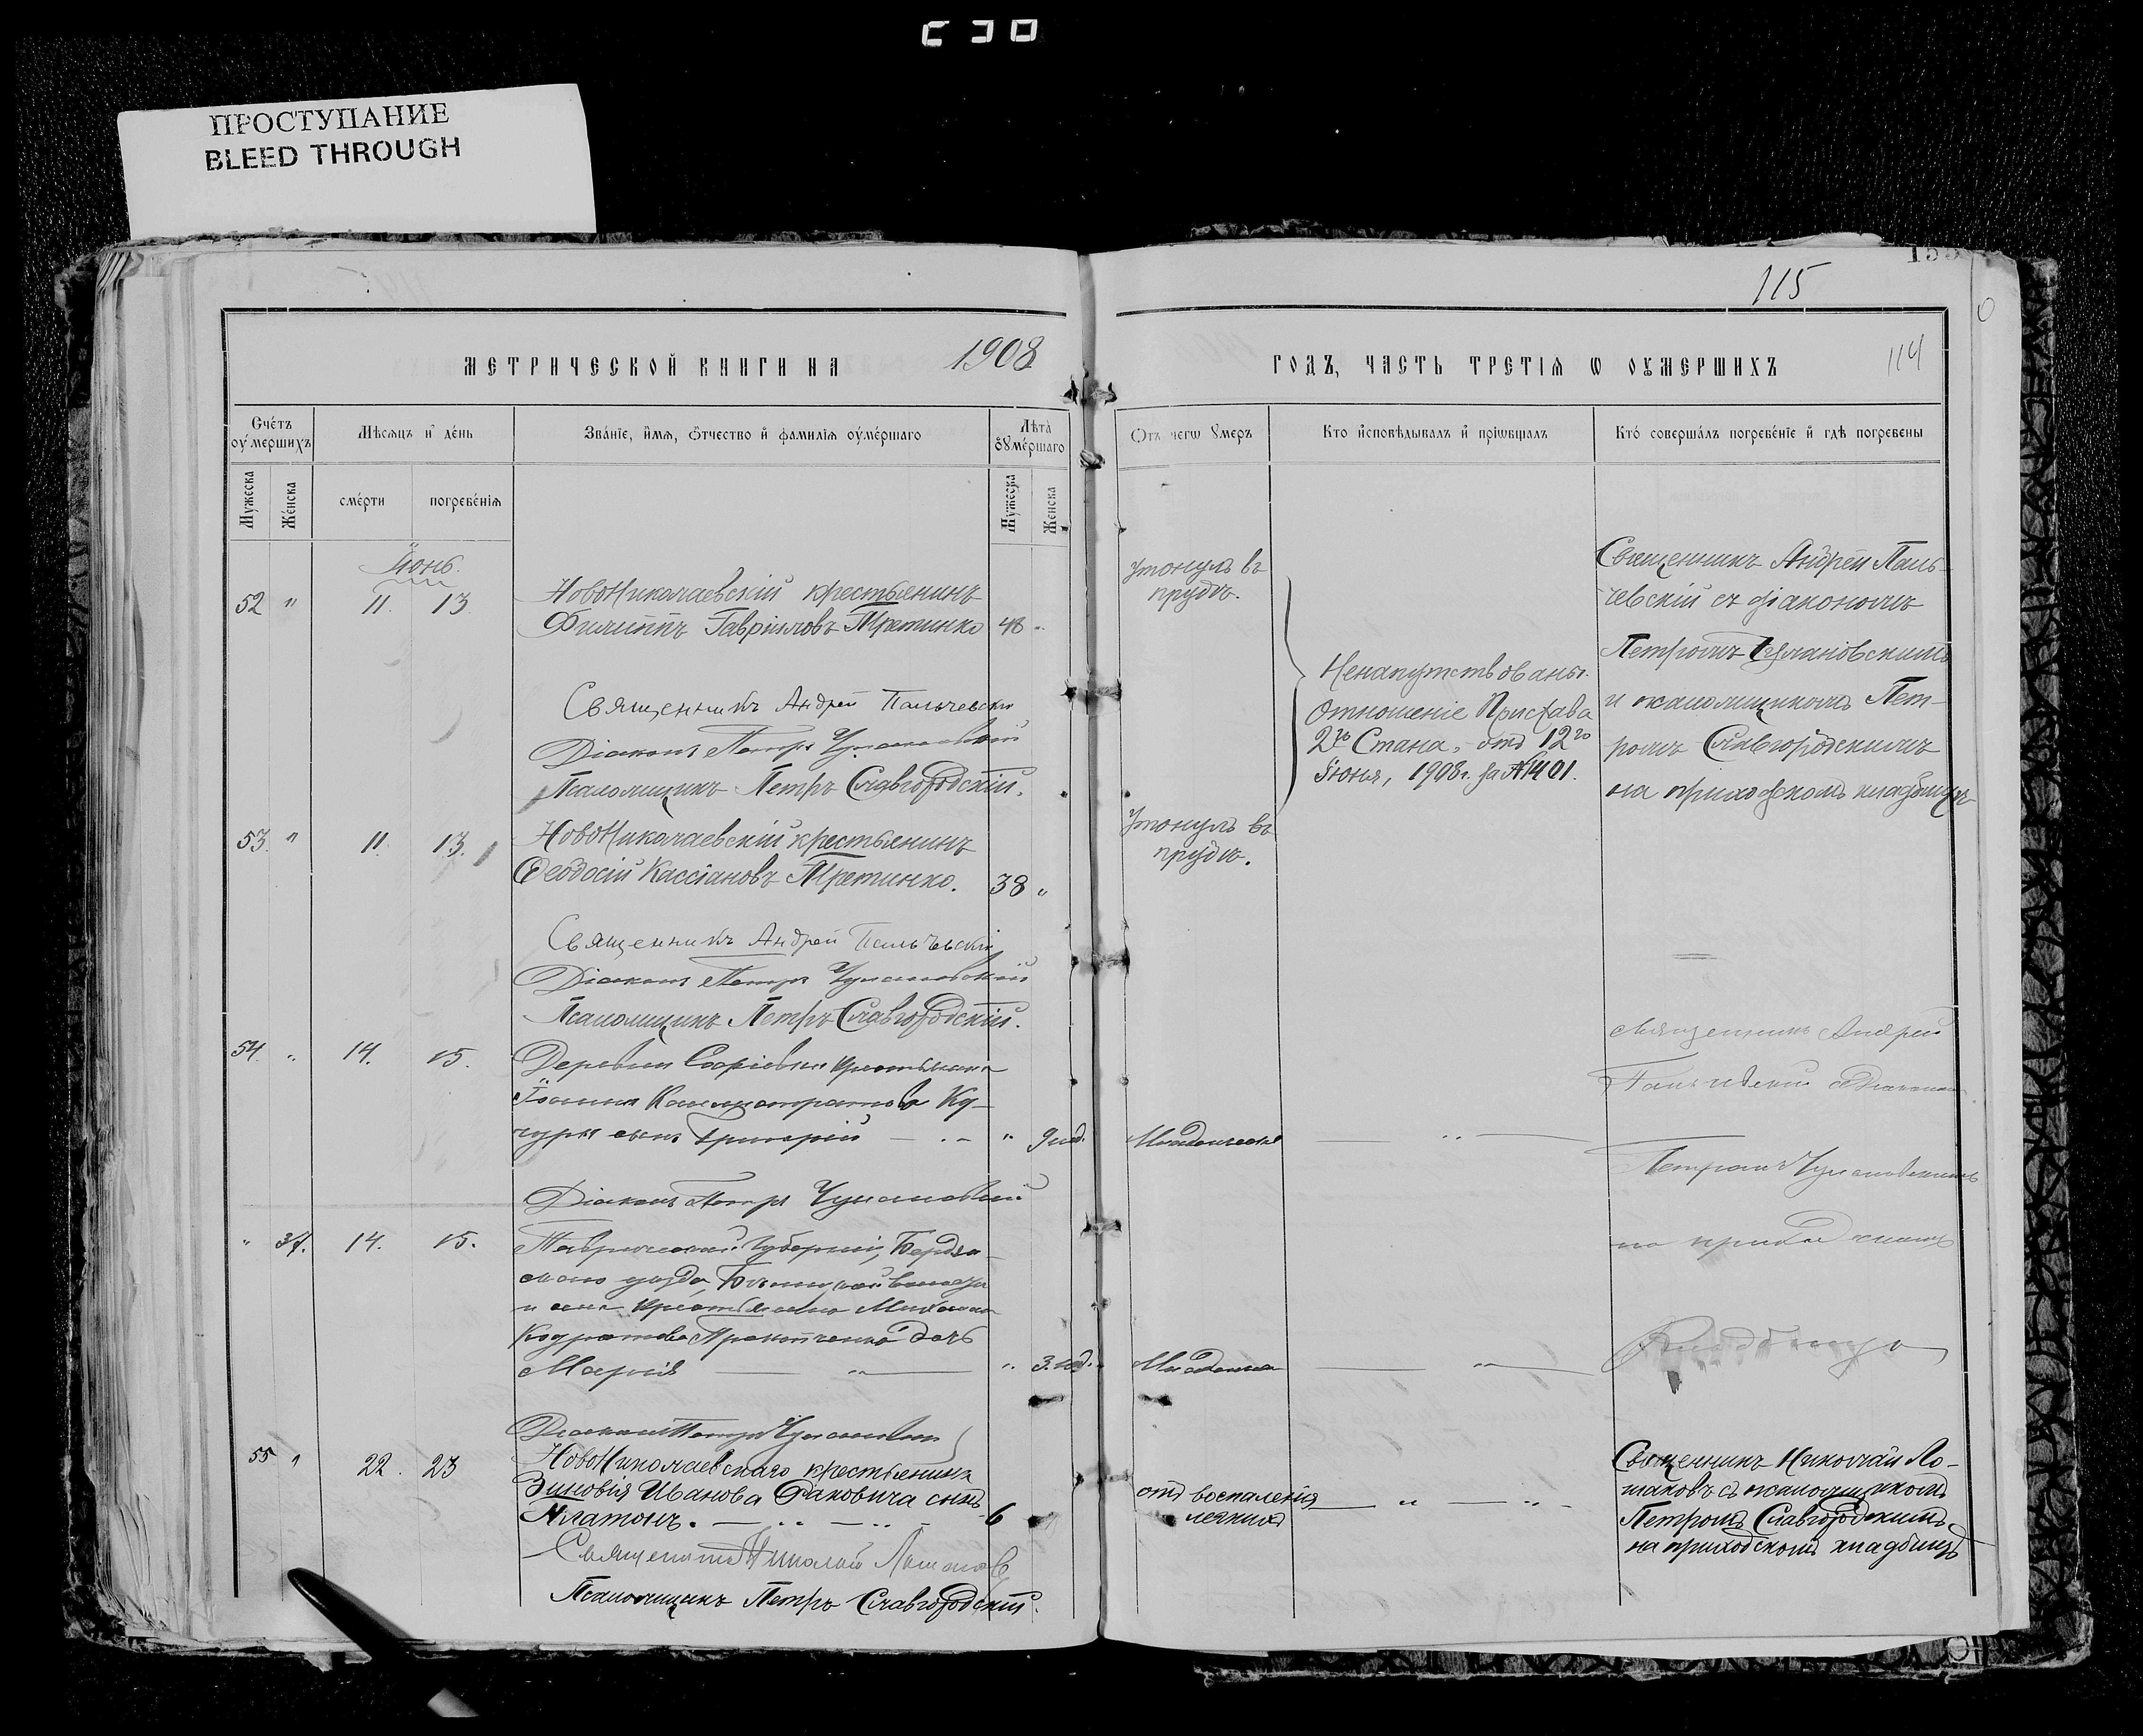 ПРОСТУПАНИЕ
BLEED THROUGH
115
114
МЕТРИЧЕСКОЙ КНИГИ НА 1908
ГОДЪ, ЧАСТЬ ТРЕТІЯ Ѡ ОУМЕРШИХЪ
Счётъ оумершихъ
Мѣсяцъ и день
Званіе, имя, отчество и фамилія оумершаго
Лѣта оумершаго
Мужеска
Женска
смерти
погребенія
Мужеска
Женска
Отъ чегѡ умеръ
Кто исповѣдывалъ и пріѡбщалъ
Кто совершалъ погребеніе и гдѣ погребены
Іюнь.
52 " 11. 13
НовоНиколаевскій крестьянинъ
Филиппъ Гавріиловъ Третинко 48 "
утонулъ въ
прудѣ.
Ненапутствованы.
Отношеніе Пристава
2го Стана, отъ 12го
Іюня, 1908г. за №1401.
Священникъ Андрей Паль-
чевскій съ діакономъ
Петромъ
и псаломщикомъ Пет-
ромъ Славгородскимъ
на приходскомъ кладбищѣ
Священникъ Андрей Пальчевскій
Діаконъ Петръ Чумановскій
Псаломщикъ Петръ Славгородскій.
53. " 11. 13.
НовоНиколаевскій крестьянинъ
Ѳеодосій Кассіановъ Третинко. 38 "
утонулъ въ
прудѣ.
Священникъ Андрей Пальчевскій
Діаконъ Петръ Чумановскій
Псаломщикъ Петръ Славгородскій.
54. " 14. 15.
Деревни Софіевки крестьянина
Іоанна Каллистратова Ку-
чуры сынъ Григорій " 9 мѣс.
Младенческая
Священникъ Андрей
Пальчевскій съ Діакономъ
Петромъ Чумановскимъ
на приходскомъ
Кладбищѣ
Діаконъ Петръ Чумановскій
" 37. 14. 15.
Таврической Губерніи, Бердян-
скаго уѣзда, волости
и села крестьянина Михаила
Кодратова Прокопченко дочь
Марія "
Младенческая
Діаконъ Петръ Чумановскій
55 " 22. 23
НовоНиколаевскаго крестьянина
Зиновія Иванова сынъ
Платонъ. 6
отъ воспаленія
легкихъ
Священникъ Николай Ло-
маковъ съ псаломщикомъ
Петромъ Славгородскимъ
на приходскомъ кладбищѣ
Священникъ Николай Ломаковъ
Псаломщикъ Петръ Славгородскій.